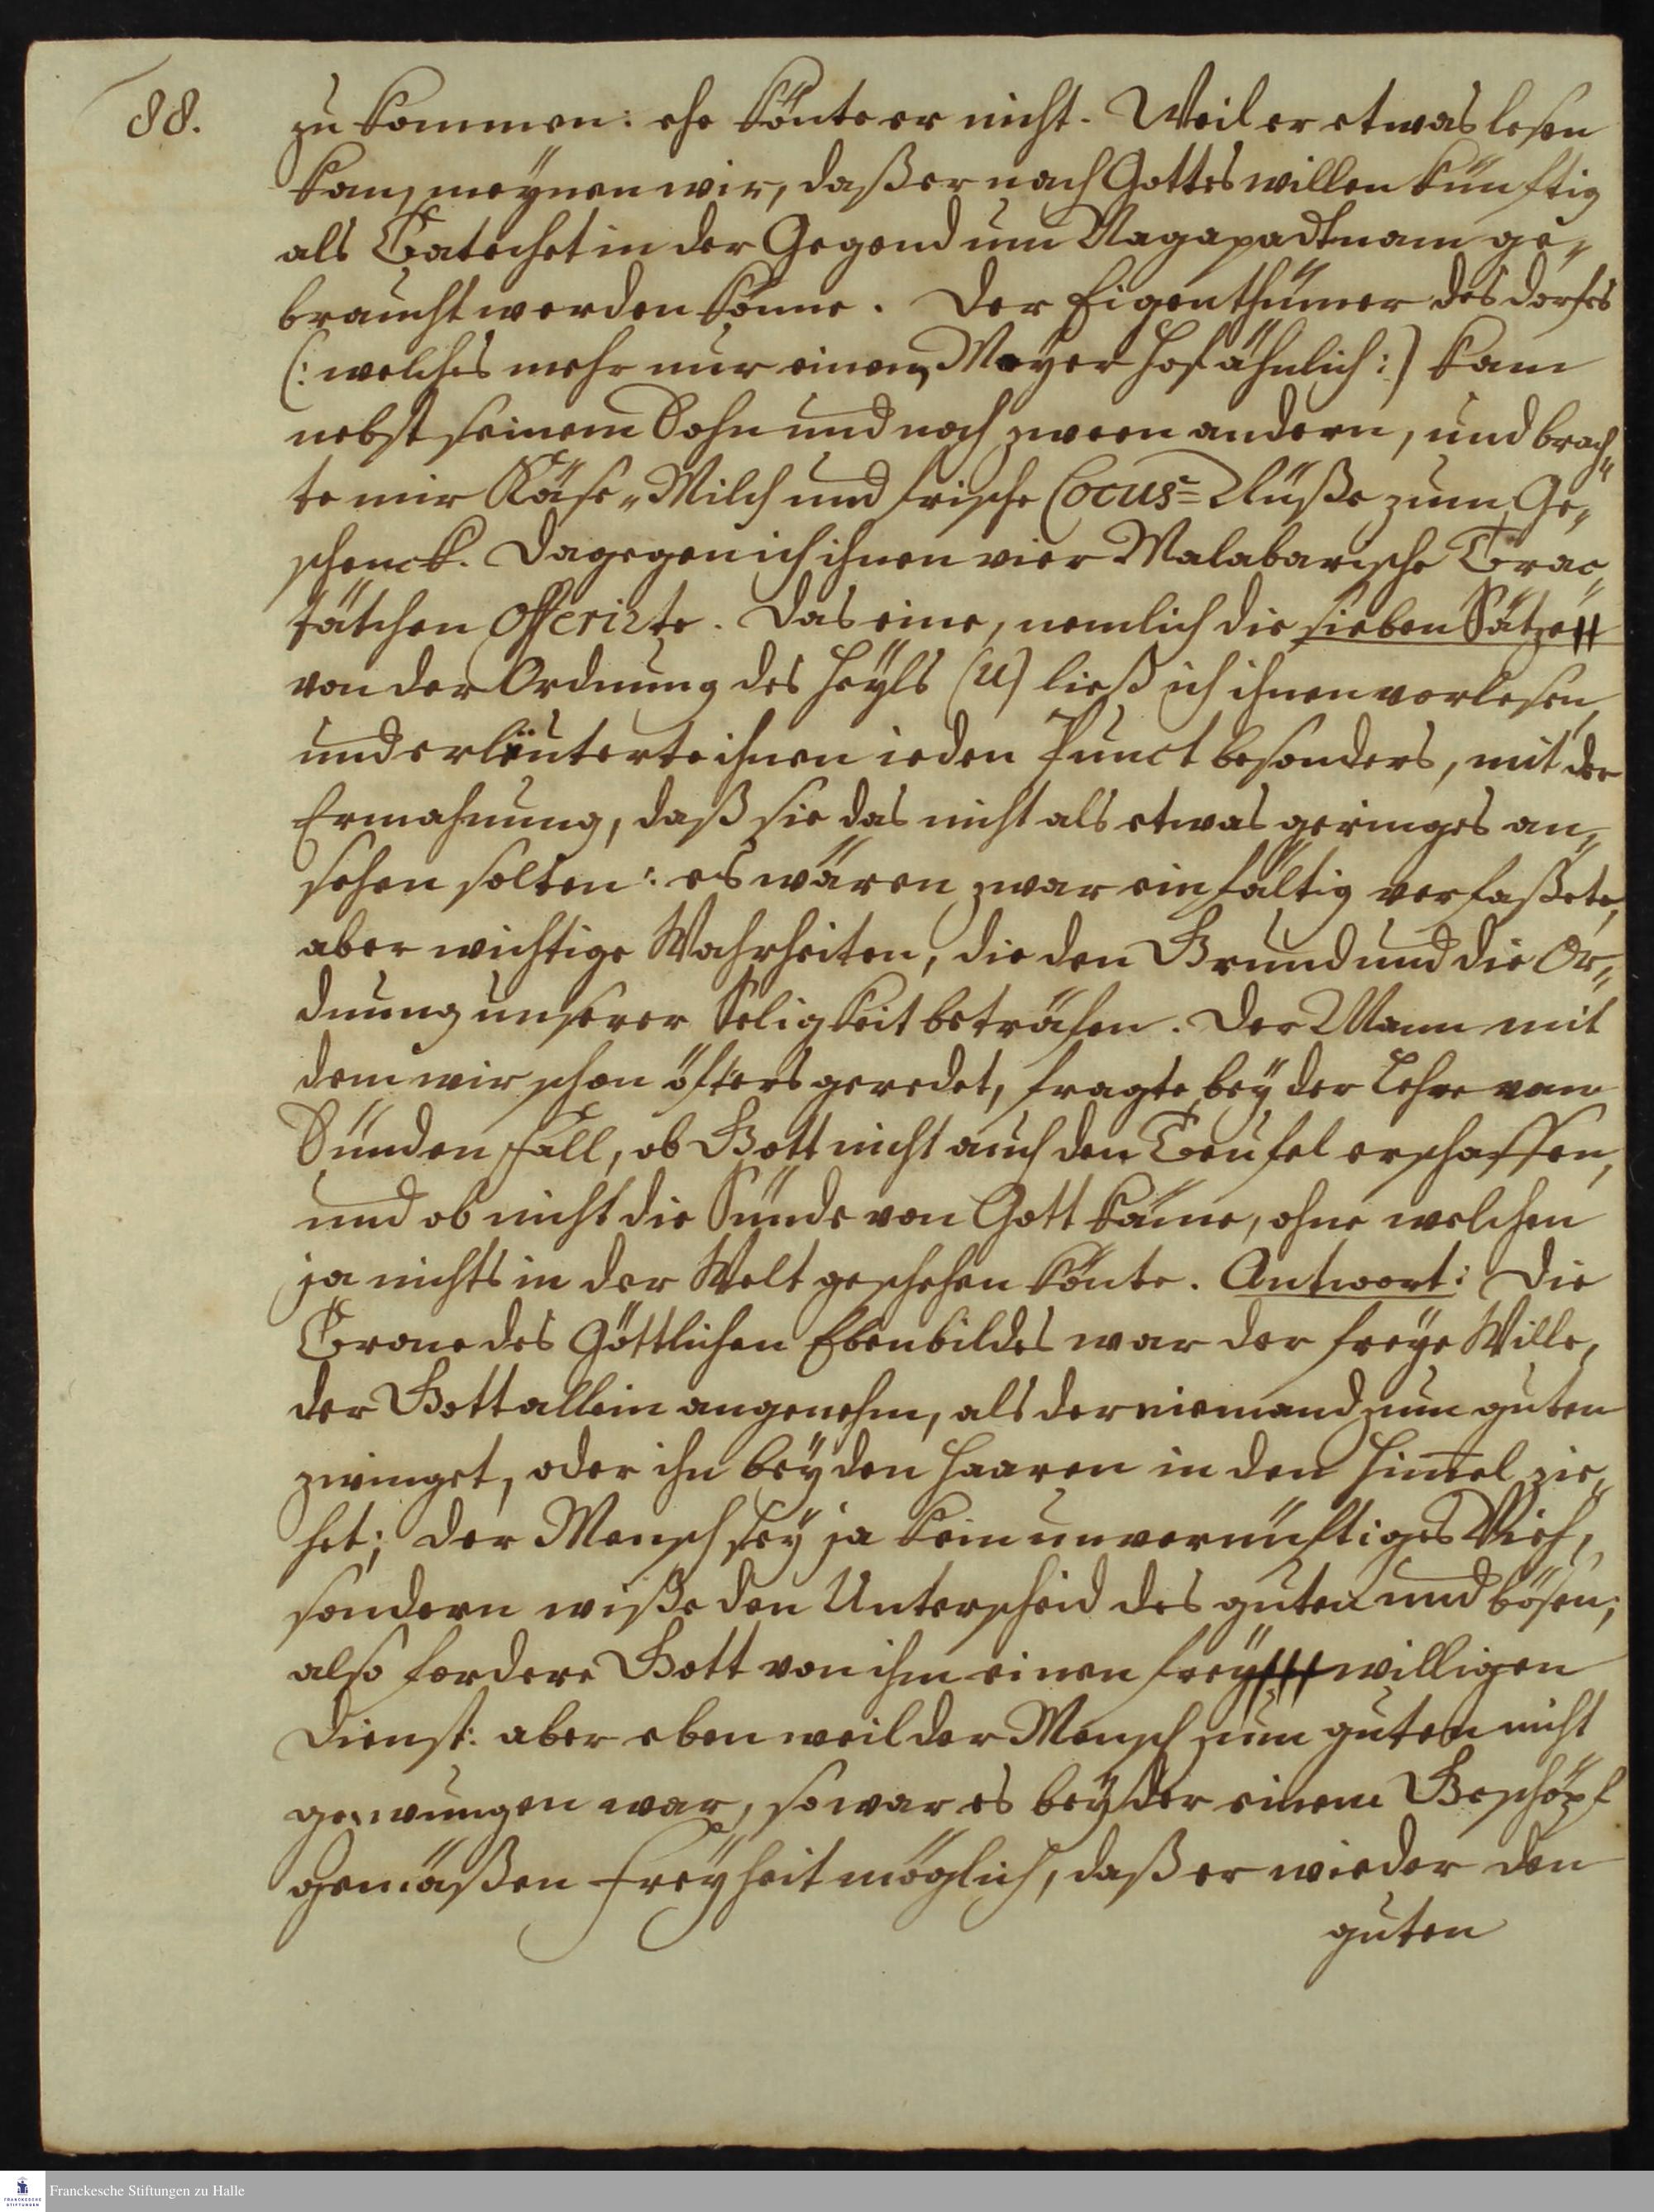 88.
zu kommen: ehe könte er nicht. Weil er etwas lesen
kan, meynen wir, daß er nach Gottes willen künftig
als Catechet in der Gegend um Nagapadtnam ge„
braucht werden könne. Der Eigenthümer des dorfes
(: welches mehr nur einem Meyer hof ähnlich:) kam
nebst seinem Sohn und noch zween andern, und brach„
te mir Käse„ Milch und frische Cocus=Nüße zum Ge„
schenck. Dagegen ich ihnen vier Malabarische Trac„
tätchen offerirte. Das eine, nemlich die sieben Sätze
von der Ordnung des Heyls (u) ließ ich ihnen vorlesen,
und erläuterte ihnen ieden Punct besonders, mit der
Ermahnung, daß sie das nicht als etwas geringes an„
sehen solten: es wären zwar einfältig verfaßete,
aber wichtige Wahrheiten, die den Grund und die Or„
dnung unserer Seligkeit beträfen. Der Mann mit
dem wir schon öfters geredet, fragte bey der Lehre vom
Sünden fall, ob Gott nicht auch den Teufel erschaffen,
und ob nicht die Sünde von Gott käme, ohne welchen
ja nichts in der Welt geschehen könte. Antwort: Die
Crone des Göttlichen Ebenbildes war der freye Wille,
der Gott allein angenehm, als der niemand zum guten
zwinget, oder ihn bey den Haaren in den Him̅el zie„
het; der Mensch sey ja kein unvernünftiges Vieh,
sondern wiße den Unterscheid des guten und bösen;
also fordere Gott von ihm einen frey willigen
Dienst: aber eben weil der Mensch zum guten nicht
gezwungen war, so war es bey der einem Geschöpf
gemäßen Freyheit möglich, daß er wieder den
guten
Franckesche Stiftungen zu Halle